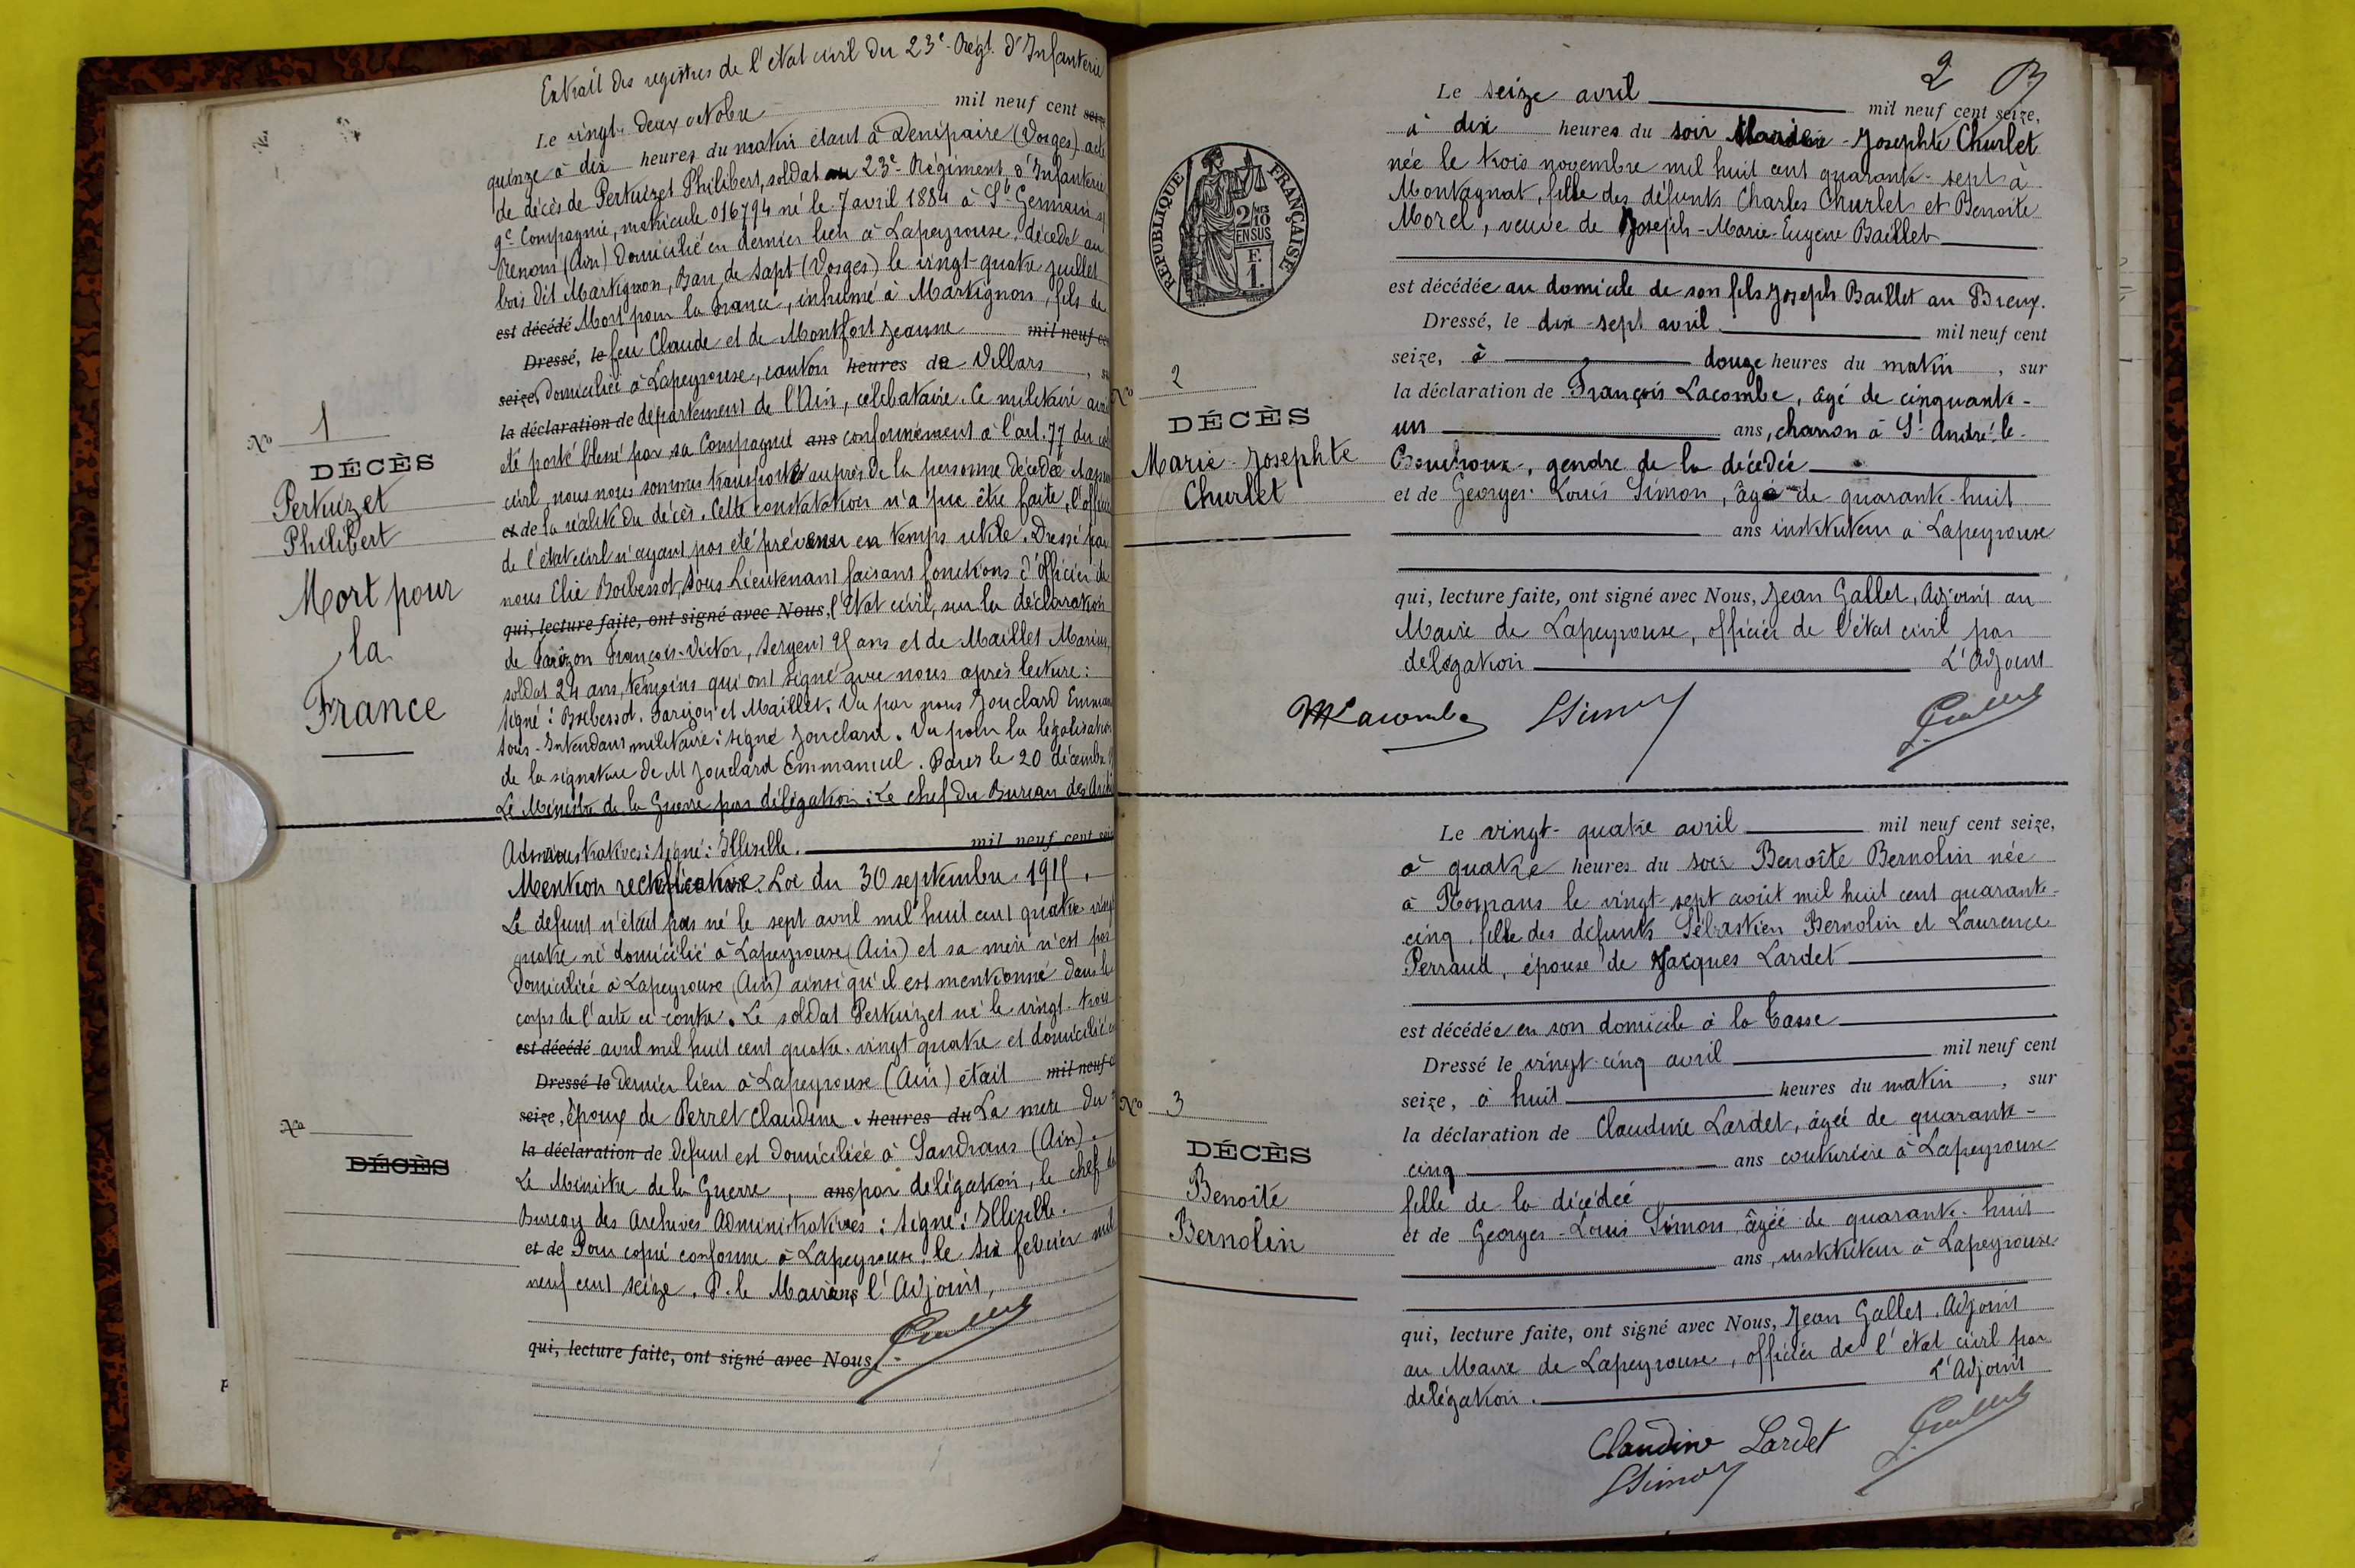 Extrait des registres de l'état civil du 23e Régt. d'Infanterie
Le vingt-deux octobre mil neuf cent seize
quinze à dix heures du matin étant à Denipaire (Vosges) acte
de décès de Pertuizet Philibert, soldat au 23e Régiment d'Infanterie
9e Compagnie, matricule 016794 né le 7 avril 1884 à St Germain s/
Renom (Ain) domicilié en dernier lieu à Lapeyrouse, décédé au
bois dit Martignon, Ban de Sapt (Vosges) le vingt-quatre juillet
est décédé Mort pour la France, inhumé à Martignon, fils de
Dressé, le feu Claude et de Montfort Jeanne mil neuf ce
seize, domiciliée à Lapeyrouse, canton heures de Villars, su
la déclaration de département de l'Ain, célibataire. Ce militaire
No 1
DÉCÈS
Pertuizet
Philibert
Mort pour
la
France
été porté blessé par sa Compagnie ans conformément à l'art. 77 du
civil, nous nous sommes transporté auprès de la personne décédée
et de la réalité du décès. Cette constatation n'a pue être faite, l'officier
de l'état civil n'ayant pas été prévenu en temps utile. Dressé par
nous Elie Boibessot, Sous Lieutenant faisant fonctions d'officier de
qui, lecture faite, ont signé avec Nous, l'état civil, sur la déclaration
de Farizon François-Victor, Sergent ans et de Maillet Marius,
soldat 24 ans, témoins qui ont signé avec nous après lecture:
signé: Boibessot. Farizon et Maillet. Vu par nous Jouclard Emman
Sous-Intendant militaire: signé Jouclard. Vu pour la légalisation
de la signature de M Jouclard Emmanuel. Paris le 20 décembre
Le Ministre de la Guerre par délégation: Le chef du Bureau des Archi
Administratives: signé: mil neuf cent sei
Mention rectificative. Loi du 30 septembre 1915.
Le défunt n'était pas né le sept avril mil huit cent quatre vingt
quatre ni domicilié à Lapeyrouse (Ain) et sa mère n'est pas
domiciliée à Lapeyrouse (Ain) ainsi qu'il est mentionné dans le
corps de l'acte ci-contre. Le soldat Pertuizet né le vingt-trois
est décédé avril mil huit cent quatre-vingt quatre et domicilié en
Dressé le dernier lieu à Lapeyrouse (Ain) était mil neuf c
seize, époux de Perret Claudine. heures du La mère du
la déclaration de défunt est domiciliée à Sandrans (Ain).
Le Ministre de la Guerre, ans par délégation, le chef du
Bureau des Archives Administratives: signé:
et de Pour copie conforme à Lapeyrouse, le six février mil
neuf cent seize. P. le Maire ans l'Adjoint,
qui, lecture faite, ont signé avec Nous,
No
DÉCÈS
2
Le seize avril mil neuf cent seize,
à dix heures du soir Marie-Josephte Churlet
née le trois novembre mil huit cent quarante-sept à
Montagnat, fille des défunts Charles Churlet et Benoite
Morel, veuve de Joseph-Marie-Eugène Baillet
est décédée au domicile de son fils Joseph Baillet au Breux.
Dressé, le dix-sept avril mil neuf cent
seize, à douze heures du matin, sur
la déclaration de François Lacombe, âgé de cinquante-
un ans, charron à St André-le-
Bouchoux, gendre de la décédée
et de Georges-Louis Simon, âgé de quarante-huit
ans instituteur à Lapeyrouse
qui, lecture faite, ont signé avec Nous, Jean Gallet, Adjoint au
Maire de Lapeyrouse, officier de l'état civil par
délégation L'Adjoint
Lacombe Simon Gallet
RÉPUBLIQUE FRANÇAISE
2/10 EN SUS
F.
1.
No 2
DÉCÈS
Marie-Josephte
Churlet
Le vingt-quatre avril mil neuf cent seize,
à quatre heures du soir Benoîte Bernolin née
à Romans le vingt-sept août mil huit cent quarante-
cinq, fille des défunts Sébastien Bernolin et Laurence
Perraud, épouse de Jacques Lardet
est décédée en son domicile à la Tasse
Dressé le vingt-cinq avril mil neuf cent
seize, à huit heures du matin, sur
la déclaration de Claudine Lardet, âgée de quarante-
cinq ans couturière à Lapeyrouse
fille de la décédée
et de Georges-Louis Simon âgée de quarante-huit
ans, instituteur à Lapeyrouse
qui, lecture faite, ont signé avec Nous, Jean Gallet, Adjoint
au Maire de Lapeyrouse, officier de l'état civil par
délégation. L'Adjoint
Claudine Lardet Gallet
Simon
No 3
DÉCÈS
Benoîte
Bernolin